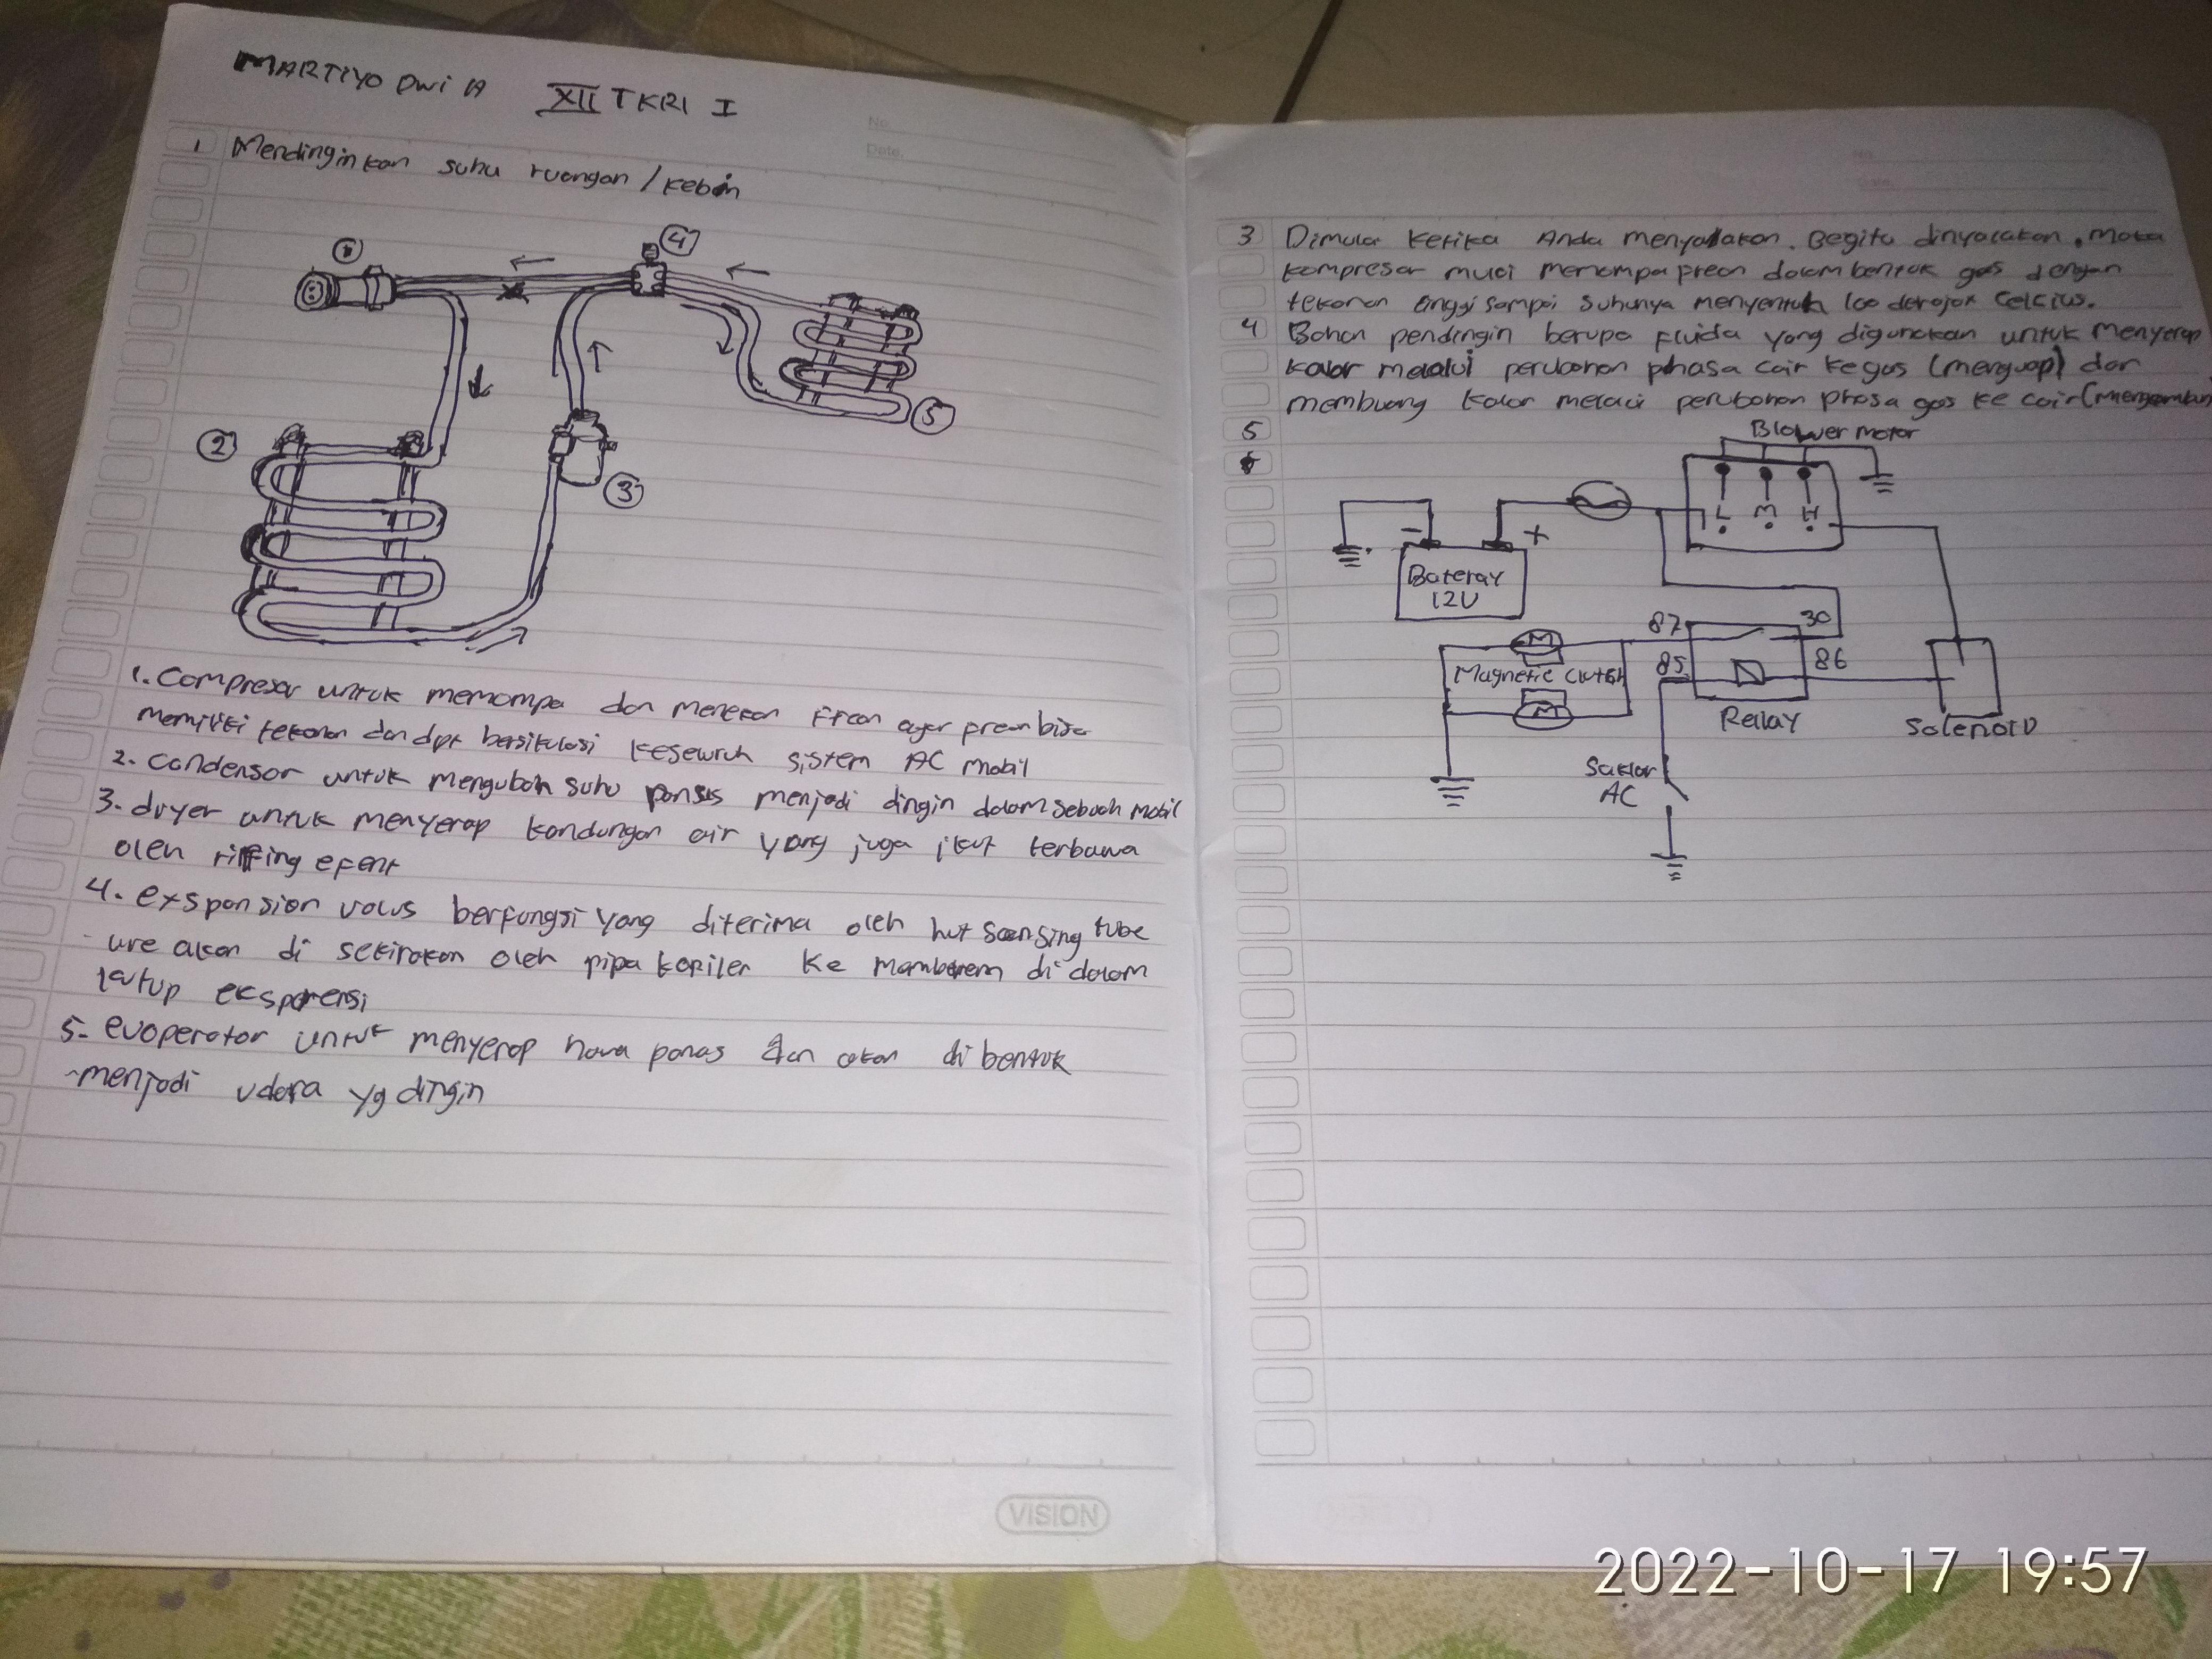 MARTIYO Dwi A XII TKRI I
No.
Date.
1 Mendinginkan suhu ruangan / kebin
1
4
5
2
3
1. Compresor untuk memompa dan menekan freon agar preon bisa
memiliki tekanan dan dpt bersikulasi keseluruh sistem AC mobil
2. Condensor untuk mengubah suhu panas menjadi dingin dalam sebuah mobil
3. dryer untuk menyerap kandungan air yang juga ikut terbawa
oleh
4. expansion berfungsi yang diterima oleh hut sensing tube
akan di oleh pipa kapiler ke di dalam
katup
5. evoperator untuk menyerap hawa panas dan akan di bentuk
menjadi udara yg dingin
3 Dimulai ketika Anda menyalakan. Begitu dinyalakan, maka
kompresor mulai memompa freon dalam bentuk gas dengan
tekanan tinggi sampai suhunya menyentuh 100 derajat Celcius.
4 Bahan pendingin berupa fluida yang digunakan untuk menyerap
kalor melalui perubahan phasa cair ke gas (menguap) dan
membuang kalor melalui perubahan phasa gas ke cair (mengembun
5
Blower motor
L M H
- +
Bateray
12V
87 30
85 86
M
Magnetic clutch
M
Rellay
Solenoid
Saklar
AC
VISION
2022-10-17 19:57